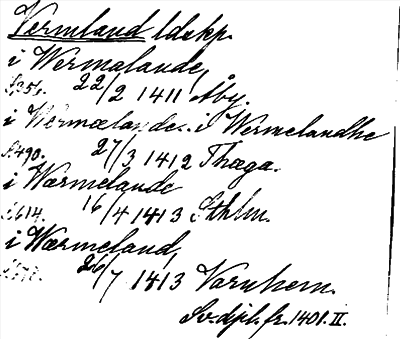 Vermland ldskp.
i Wermalande,
S.356. 22/2 1411 Åby.
i Wermælande. i Wermelandhe
S.490. 27/3 1412 Thæga.
i Wærmelande
S.614. 16/4 1413 Sthlm.
i Wærmeland,
26/7 1413 Varnhem.
Sv. dipl. fr. 1401. II.